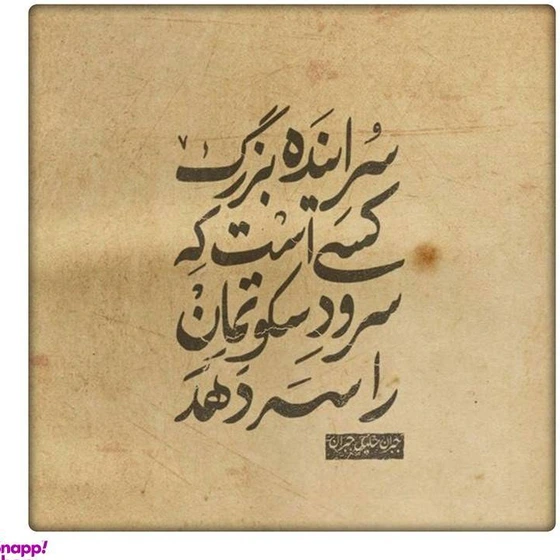 سُراینده بزرگ
کسی است که
سرودِ سکوتمان
را سر دهد
جبران خلیل جبران
napp!